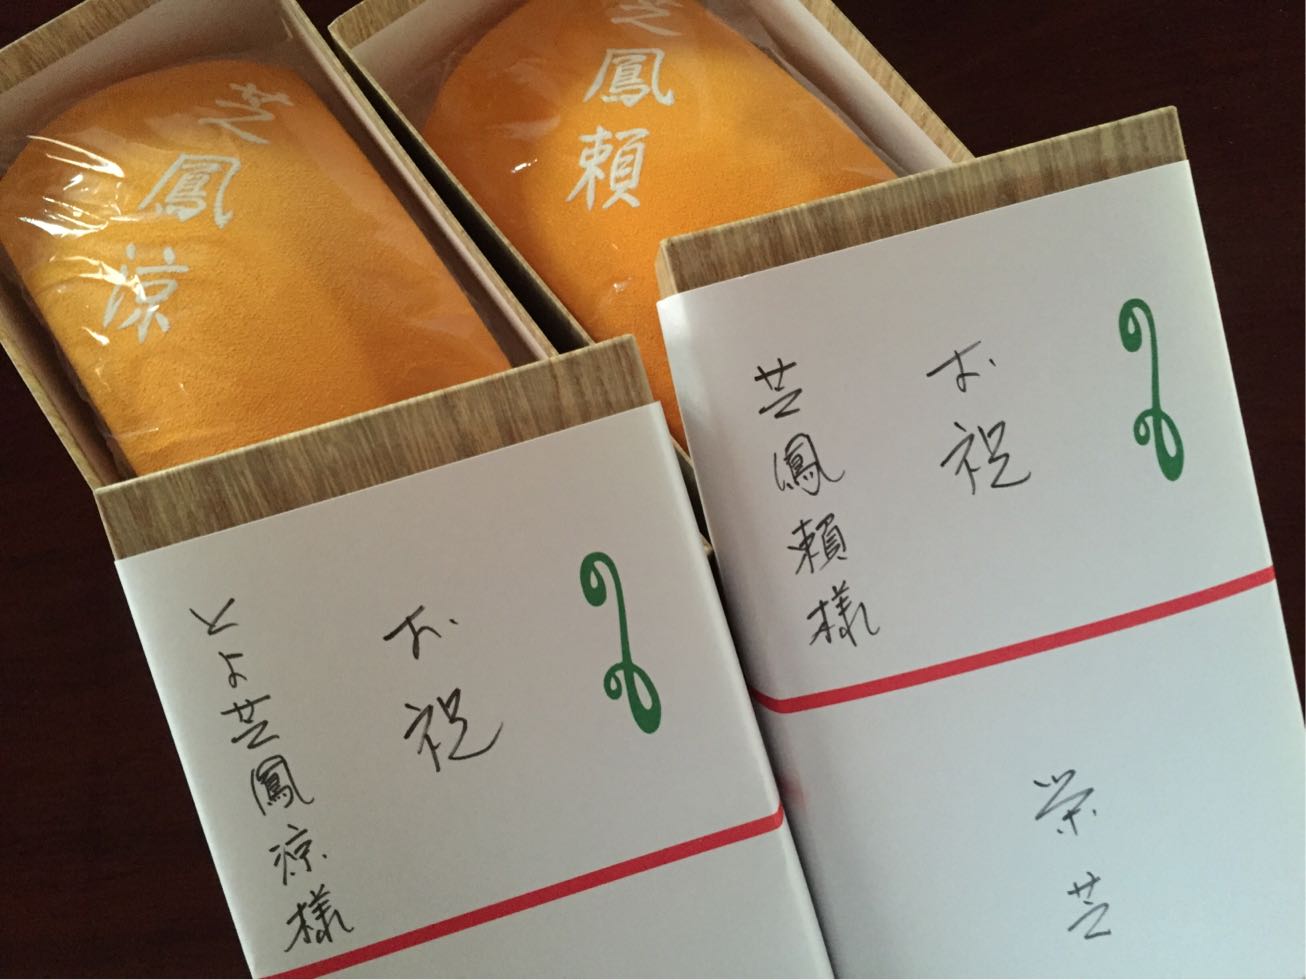 芝鳳涼
芝鳳頼
お祝
とよ芝鳳涼様
お祝
芝鳳頼様
栄芝